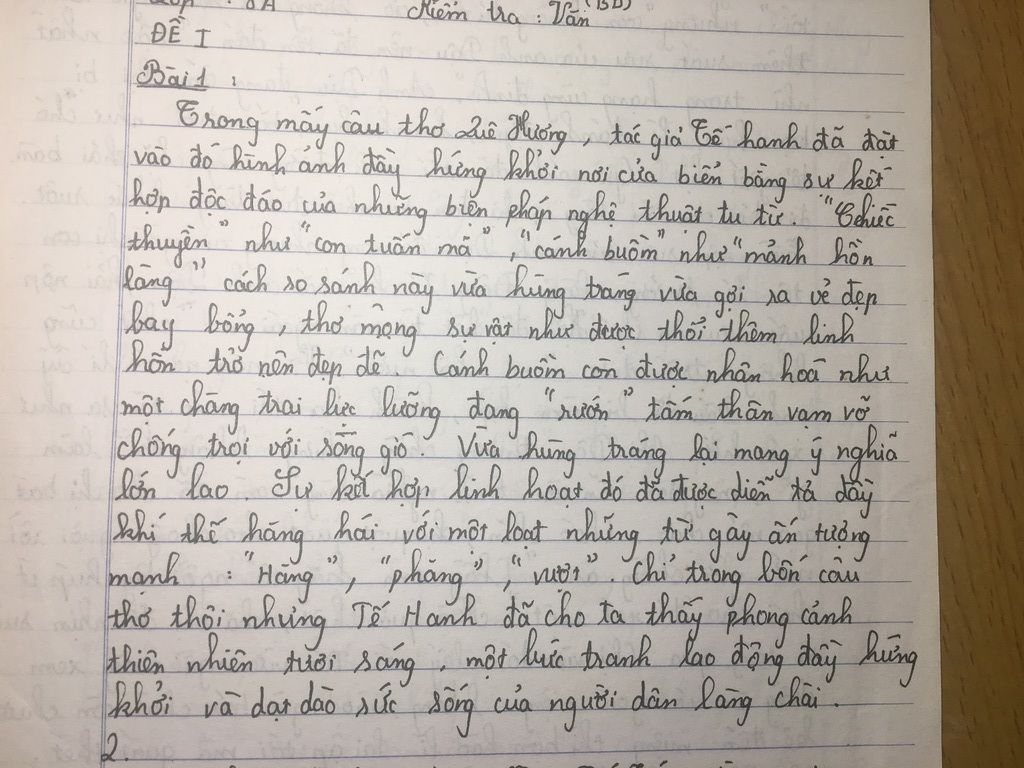 Kiểm tra : Văn (BD)
ĐỀ I
Bài 1 :
Trong mấy câu thơ Quê Hương, tác giả Tế hanh đã đặt
vào đó hình ảnh đầy hứng khởi nơi cửa biển bằng sự kết
hợp độc đáo của những biện pháp nghệ thuật tu từ. "Chiếc
thuyền" như "con tuấn mã", "cánh buồm" như "mảnh hồn
làng" cách so sánh này vừa hùng tráng vừa gợi ra vẻ đẹp
bay bổng, thơ mộng sự vật như được thổi thêm linh
hồn trở nên đẹp đẽ Cánh buồm còn được nhân hoá như
một chàng trai lực lưỡng đang "rướn" tấm thân vạm vỡ
chống trọi với sóng gió. Vừa hùng tráng lại mang ý nghĩa
lớn lao Sự kết hợp linh hoạt đó đã được diễn tả đầy
khí thế hăng hái với một loạt những từ gây ấn tượng
mạnh : "Hăng", "phăng", "vượt". Chỉ trong bốn câu
thơ thôi nhưng Tế Hanh đã cho ta thấy phong cảnh
thiên nhiên tươi sáng, một bức tranh lao động đầy hứng
khởi và dạt dào sức sống của người dân làng chài.
2.